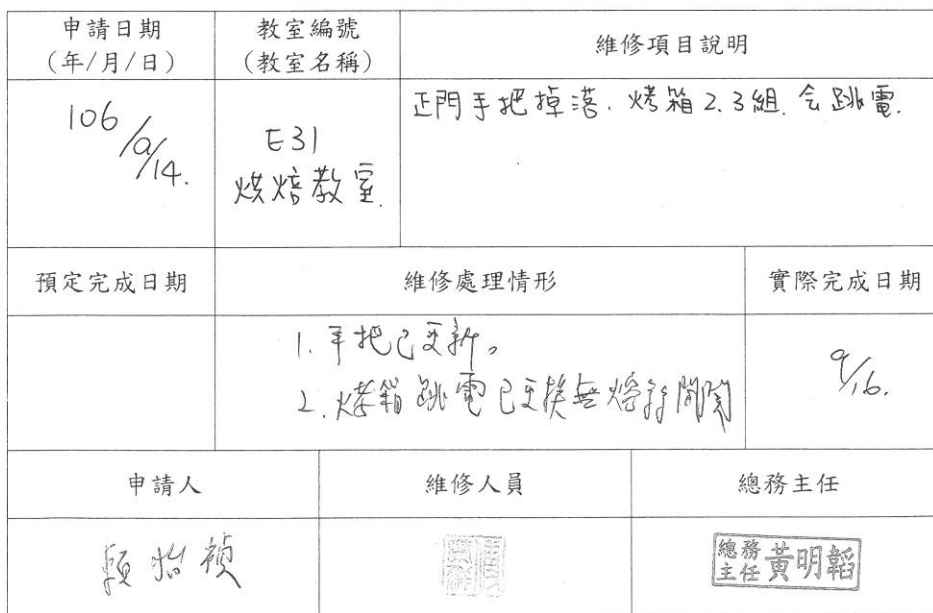 申請日期
(年/月/日)
教室編號
(教室名稱)
維修項目說明
106/9/14.
E31
烘焙教室.
正門手把掉落.烤箱2.3組.会跳電.
預定完成日期
維修處理情形
實際完成日期
1.手把已更新。
2.烤箱跳電已更换無熔絲開關
9/16.
申請人
維修人員
總務主任
怡禎
總務
主任
黃明韜